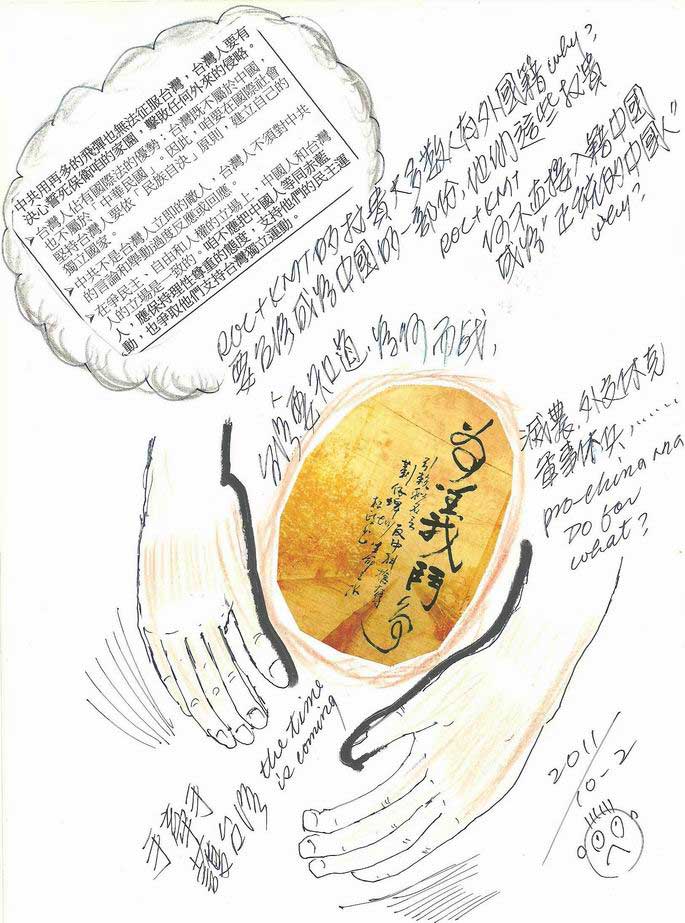 中共用再多的飛彈也無法征服台灣，台灣人要有
決心誓死保衛咱的家園，擊敗任何外來的侵略。
➤台灣人佔有國際法的優勢；台灣既不屬於中國，
也不屬於「中華民國」。因此，咱要在國際社會
堅持台灣人要依「民族自決」原則，建立自己的
獨立國家。
➤中共不是台灣人立即的敵人，台灣人不須對中共
的言論和舉動過度反應或回應。
➤在爭民主、自由和人權的立場上，中國人和台灣
人的立場是一致的。咱不應把中國人等同赤藍
人，應保持理性尊重的態度，支持他們的民主運
動，也爭取他們支持台灣獨立運動。
ROC+KMT的权貴大多數人有外國籍 why?
要台灣成為中國的一部份,他們這些权貴
ROC+KMT
何不直接入籍中國
成為"正統的中國人"
why?
台灣要知道,為何而战,
滅農,外交休克
軍事休兵,......
pro-china ma
DO for
what?
為義鬥爭
the time
is coming
手牽手
護台灣
2011
10-2